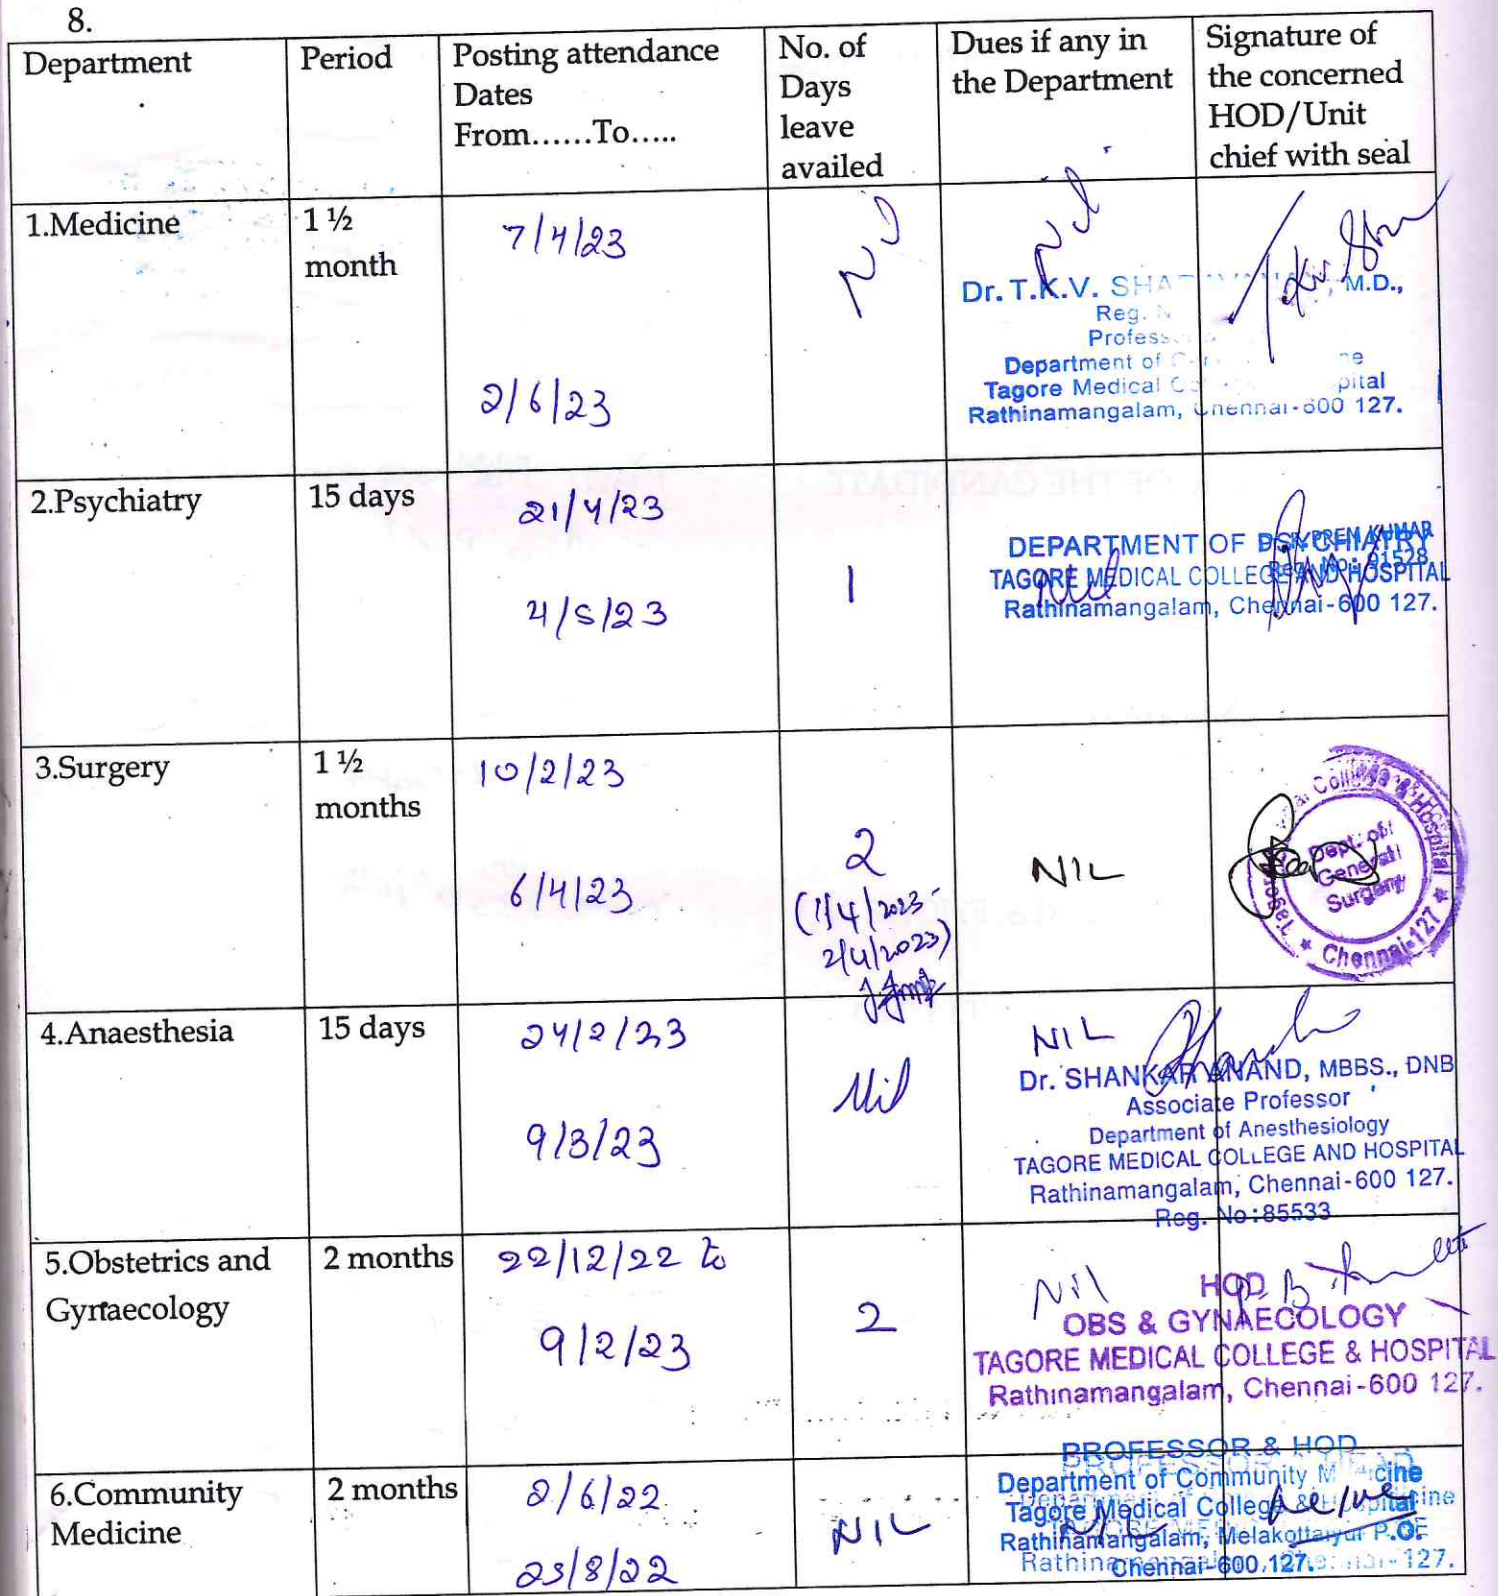 8.
Department
Period
Posting attendance
Dates
From......To.....
No. of
Days
leave
availed
Dues if any in
the Department
Signature of
the concerned
HOD/Unit
chief with seal
1.Medicine
1 ½
month
7/4/23
2/6/23
Nil
Nil
Dr. T.K.V. M.D.,
Reg.
Department of
Tagore Medical
Rathinamangalam, Chennai-600 127.
2.Psychiatry
15 days
21/4/23
4/5/23
1
Nil
PREM KUMAR
Reg. No: 91528
DEPARTMENT OF PSYCHIATRY
TAGORE MEDICAL COLLEGE AND HOSPITAL
Rathinamangalam, Chennai-600 127.
3.Surgery
1 ½
months
10/2/23
6/4/23
2
(1/4/2023-
2/4/2023)
NIL
College & Hospital
Dept. of
General
Surgery
Chennai-127
4.Anaesthesia
15 days
24/2/23
9/3/23
Nil
NIL
Dr. SHANKAR ANAND, MBBS., DNB
Associate Professor
Department of Anesthesiology
TAGORE MEDICAL COLLEGE AND HOSPITAL
Rathinamangalam, Chennai-600 127.
Reg. No:85533
5.Obstetrics and
Gynaecology
2 months
22/12/22 to
9/2/23
2
Nil
HOD
OBS & GYNAECOLOGY
TAGORE MEDICAL COLLEGE & HOSPITAL
Rathinamangalam, Chennai-600 127.
6.Community
Medicine
2 months
2/6/22
23/8/22
NIL
NIL
PROFESSOR & HOD
Department of Community Medicine
Tagore Medical College & Hospital
Rathinamangalam, Melakottaiyur P.O.
Chennai-600 127.